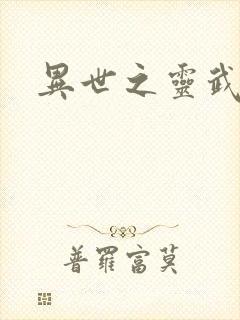 異世之靈武
普羅富莫